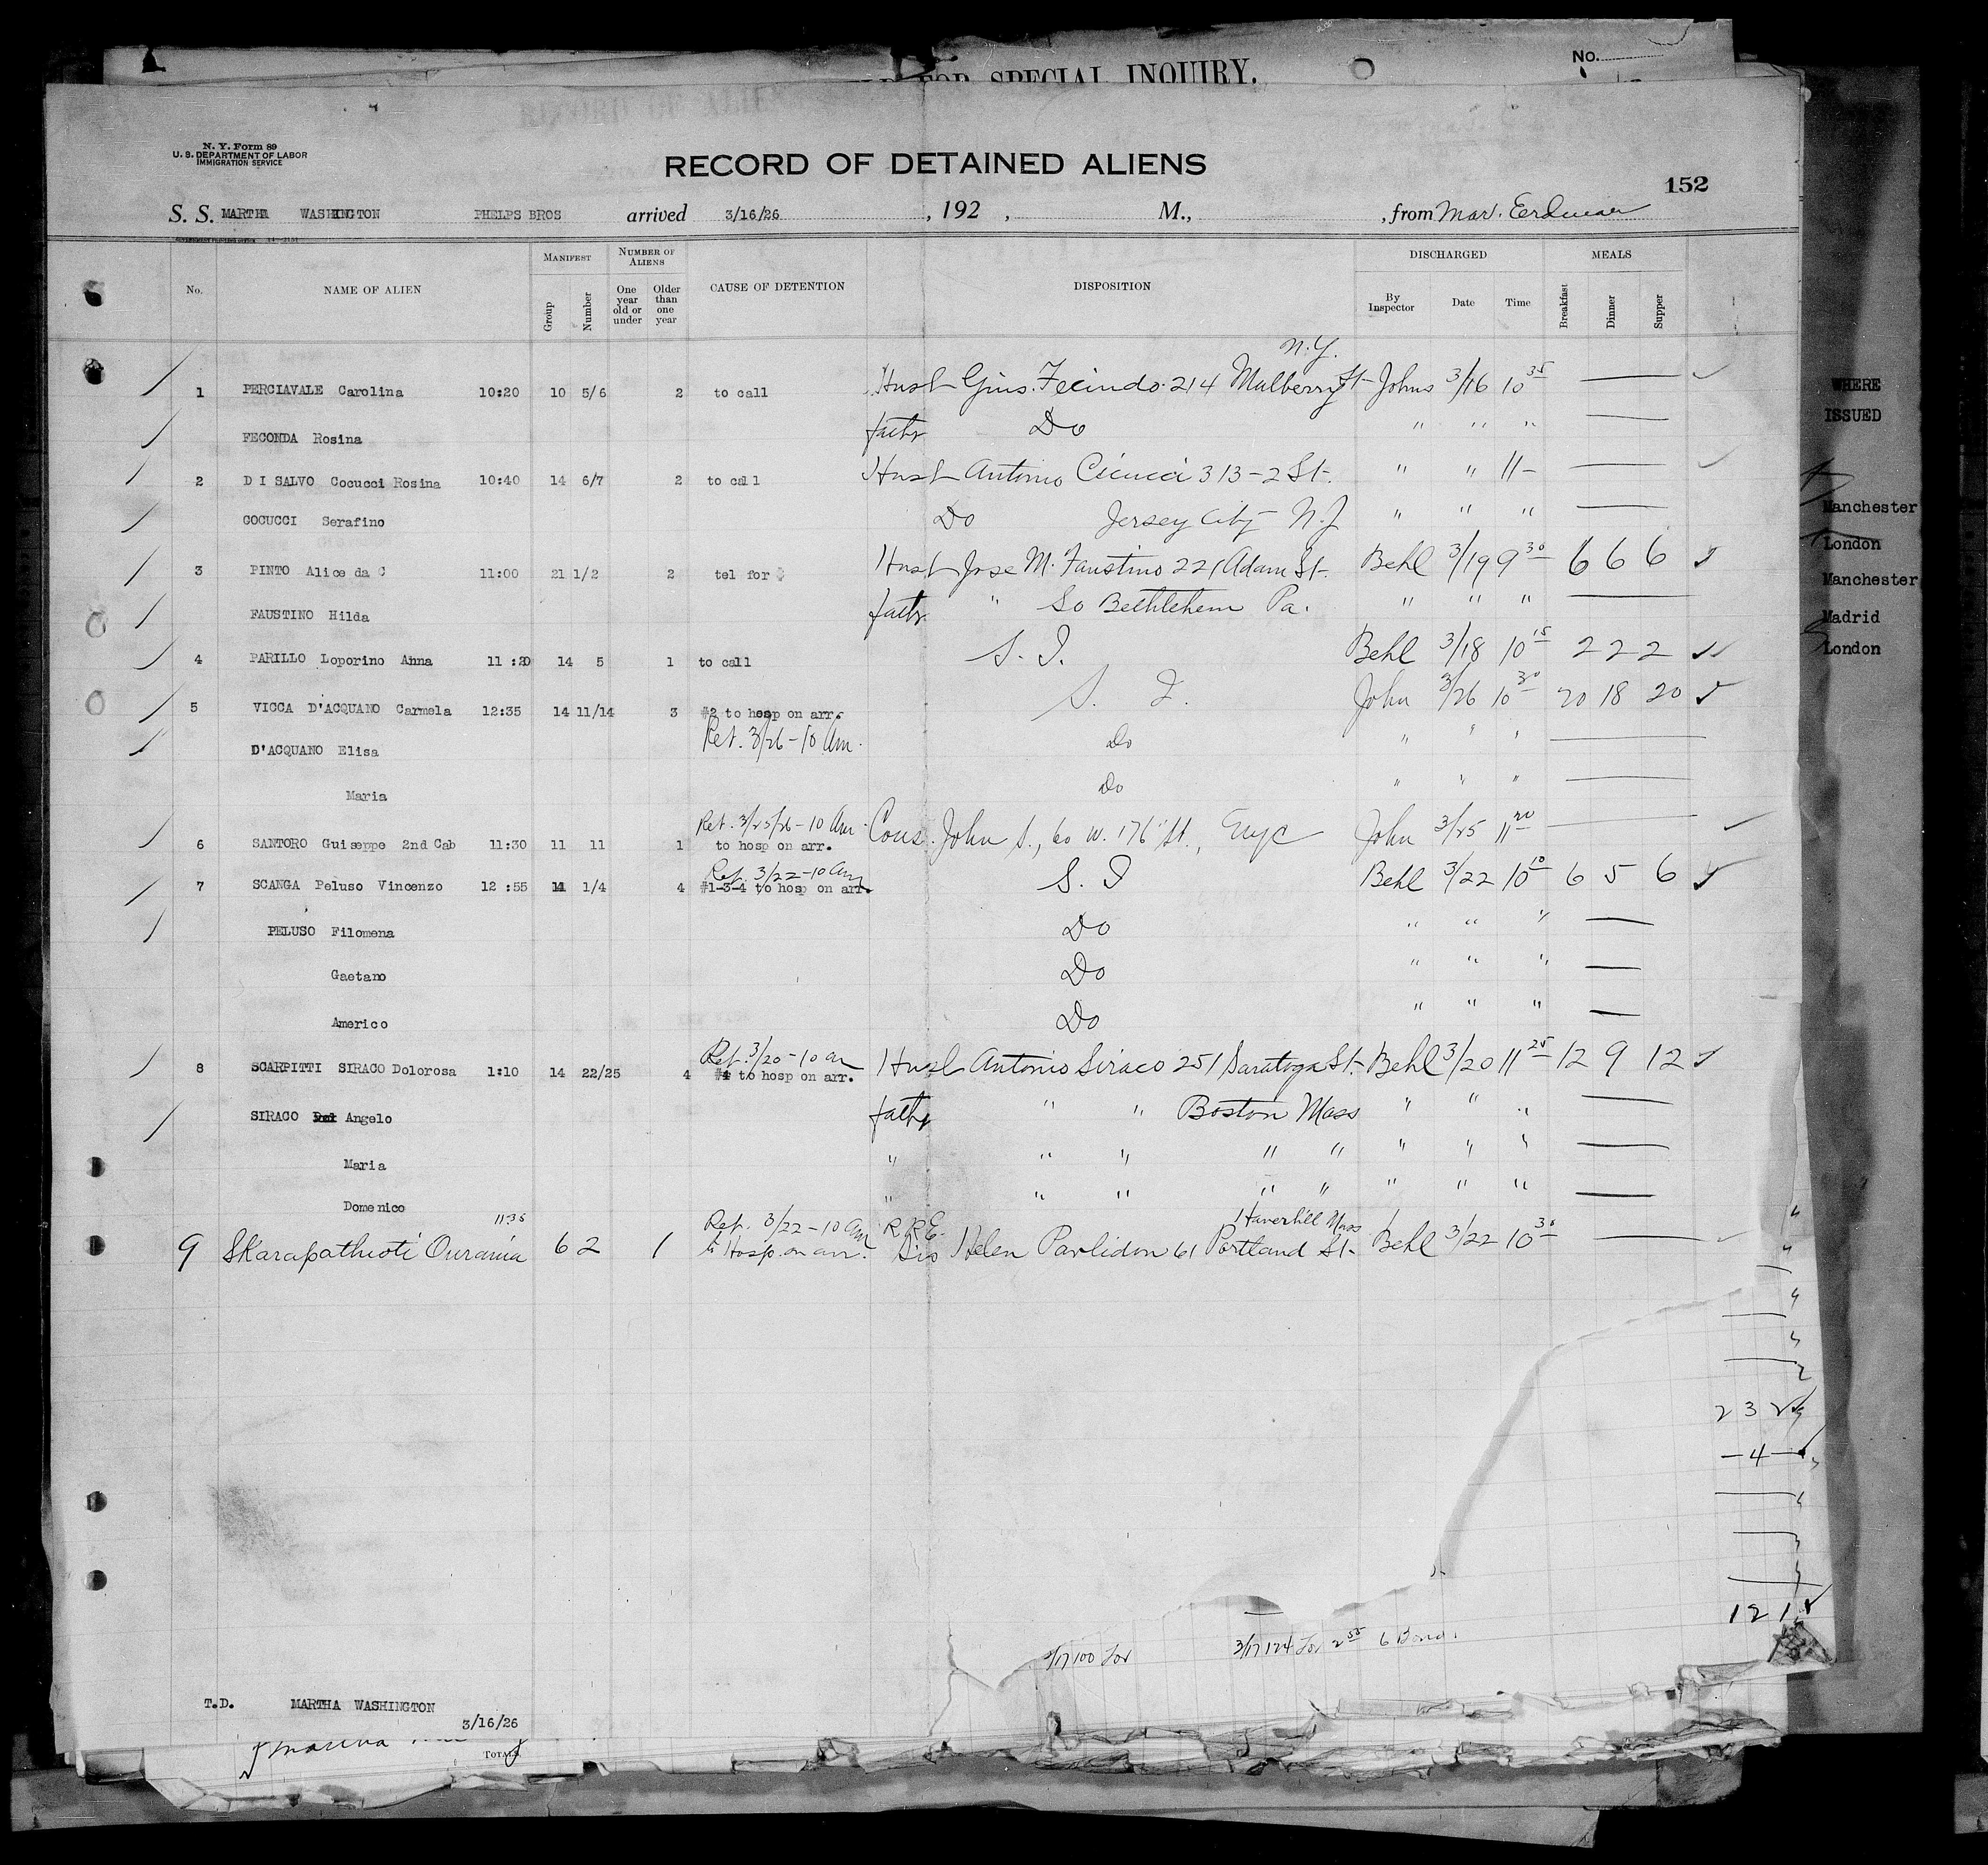 No.
FOR SPECIAL INQUIRY.
N. Y. Form 89
U. S. DEPARTMENT OF LABOR
IMMIGRATION SERVICE
RECORD OF DETAINED ALIENS
152
S. S. MARTHA WASHINGTON PHELPS BROS arrived 3/16/26 , 192 , M., , from Mar. Erdman
No. NAME OF ALIEN MANIFEST Group Number NUMBER OF ALIENS One year old or under Older than one year CAUSE OF DETENTION DISPOSITION DISCHARGED By Inspector Date Time MEALS Breakfast Dinner Supper
N.Y.
1 PERCIAVALE Carolina 10:20 10 5/6 2 to call Husb Gius. Fecindo 214 Mulberry St- Johns 3/16 10 35
FECONDA Rosina fathr Do " " "
2 D I SALVO Cocucci Rosina 10:40 14 6/7 2 to call Husb Antonio Cicucci 313-2 St. " " 11-
COCUCCI Serafino Do Jersey City N.J " " "
3 PINTO Alice da C 11:00 21 1/2 2 tel for $ Husb Jose M. Faustino 221 Adam St- Behl 3/19 9 30 6 6 6
FAUSTINO Hilda fathr " So Bethlehem Pa. " " "
4 PARILLO Loporino Anna 11:20 14 5 1 to call S. I. Behl 3/18 10 15 2 2 2
5 VICCA D'ACQUANO Carmela 12:35 14 11/14 3 #2 to hosp on arr. S. I. John 3/26 10 30 20 18 20
D'ACQUANO Elisa Ret. 3/26-10 Am. Do " " "
Maria Do " " "
Ret. 3/25/26-10 Am.
6 SANTORO Guiseppe 2nd Cab 11:30 11 11 1 to hosp on arr. Cous. John S., 60 W. 176" St., Nyc John 3/25 11 20
Ret. 3/22-10 Am
7 SCANGA Peluso Vincenzo 12:55 14 1/4 4 #1-3-4 to hosp on arr. S. I Behl 3/22 10 10 6 5 6
PELUSO Filomena Do " " "
Gaetano Do " " "
Americo Do " " "
Ret. 3/20-10 am
8 SCARPITTI SIRACO Dolorosa 1:10 14 22/25 4 #4 to hosp on arr. Husb Antonio Siraco 251 Saratoga St- Behl 3/20 11 25 12 9 12
SIRACO Angelo fathr " " Boston Mass " " "
Maria " " " " " " " "
Domenico " " " " " " " "
11:35 Ret. 3/22-10 Am R.R.E. Haverhill Mass
9 Skarapathioti Ourania 6 2 1 to Hosp. on arr. Sis Helen Pavlidon 61 Portland St- Behl 3/22 10 30
WHERE
ISSUED
Manchester
London
Manchester
Madrid
London
2 3 2
-4-
12 1
3/17 100 For 3/17 124 For 2 55 6 Bond.
T.D. MARTHA WASHINGTON
3/16/26
TOTALS